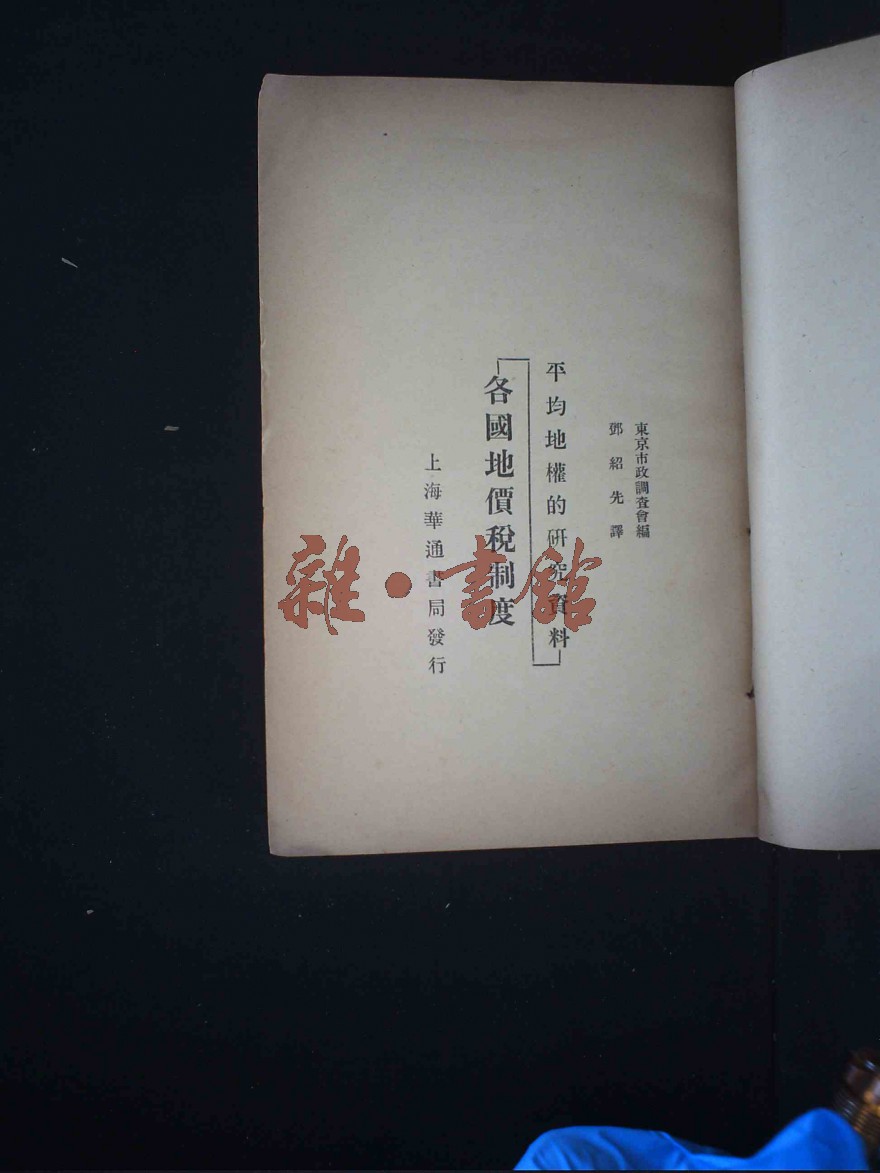 東京市政調查會編
鄧紹先譯
平均地權的研究資料
各國地價稅制度
上海華通書局發行
雜·書館